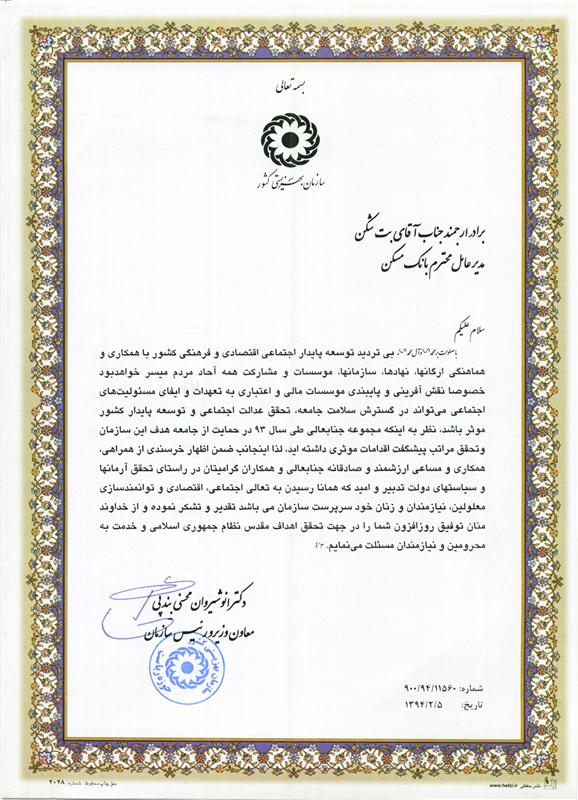 بسمه تعالی
سازمان بهزیستی کشور
برادر ارجمند جناب آقای بت شکن
مدیر عامل محترم بانک مسکن
سلام علیکم
با صلوات بر محمد (ص) و آل محمد (ص)، بی تردید توسعه پایدار اجتماعی اقتصادی و فرهنگی کشور با همکاری و
هماهنگی ارگانها، نهادها، سازمانها، موسسات و مشارکت همه آحاد مردم میسر خواهدبود
خصوصا نقش آفرینی و پایبندی موسسات مالی و اعتباری به تعهدات و ایفای مسئولیت‌های
اجتماعی می‌تواند در گسترش سلامت جامعه، تحقق عدالت اجتماعی و توسعه پایدار کشور
موثر باشد، نظر به اینکه مجموعه جنابعالی طی سال ۹۳ در حمایت از جامعه هدف این سازمان
وتحقق مراتب پیشگفت اقدامات موثری داشته اید، لذا اینجانب ضمن اظهار خرسندی از همراهی،
همکاری و مساعی ارزشمند و صادقانه جنابعالی و همکاران گرامیتان در راستای تحقق آرمانها
و سیاستهای دولت تدبیر و امید که همانا رسیدن به تعالی اجتماعی، اقتصادی و توانمندسازی
معلولین، نیازمندان و زنان خود سرپرست سازمان می باشد تقدیر و تشکر نموده و از خداوند
منان توفیق روزافزون شما را در جهت تحقق اهداف مقدس نظام جمهوری اسلامی و خدمت به
محرومین و نیازمندان مسئلت می‌نمایم.
دکتر انوشیروان محسنی بندپی
معاون وزیر و رئیس سازمان
سازمان بهزیستی کشور
شماره: ۹۰۰/۹۴/۱۱۵۶۰
تاریخ: ۱۳۹۴/۲/۵
حق چاپ محفوظ شماره: ۲۰۲۸
نشر حفظی www.hefzi.ir